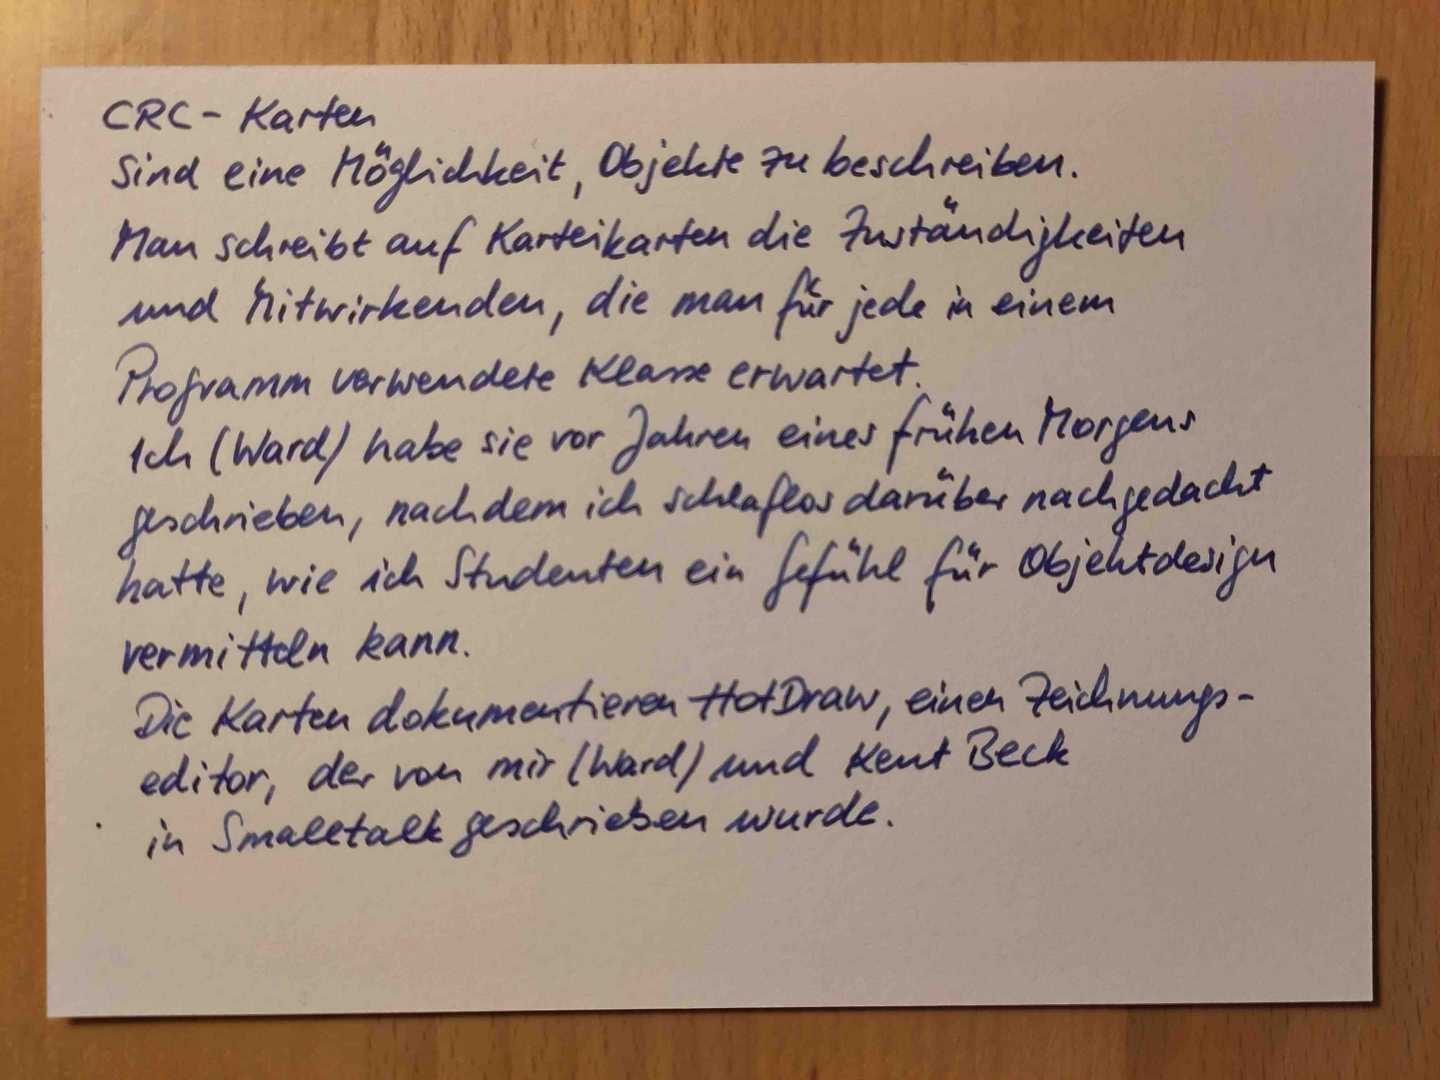 CRC-Karten
Sind eine Möglichkeit, Objekte zu beschreiben.
Man schreibt auf Karteikarten die Zuständigkeiten
und Mitwirkenden, die man für jede in einem
Programm verwendete Klasse erwartet.
Ich (Ward) habe sie vor Jahren eines frühen Morgens
geschrieben, nachdem ich schlaflos darüber nachgedacht
hatte, wie ich Studenten ein Gefühl für Objektdesign
vermitteln kann.
Die Karten dokumentieren HotDraw, einen Zeichnungs-
editor, der von mir (Ward) und Kent Beck
in Smalltalk geschrieben wurde.